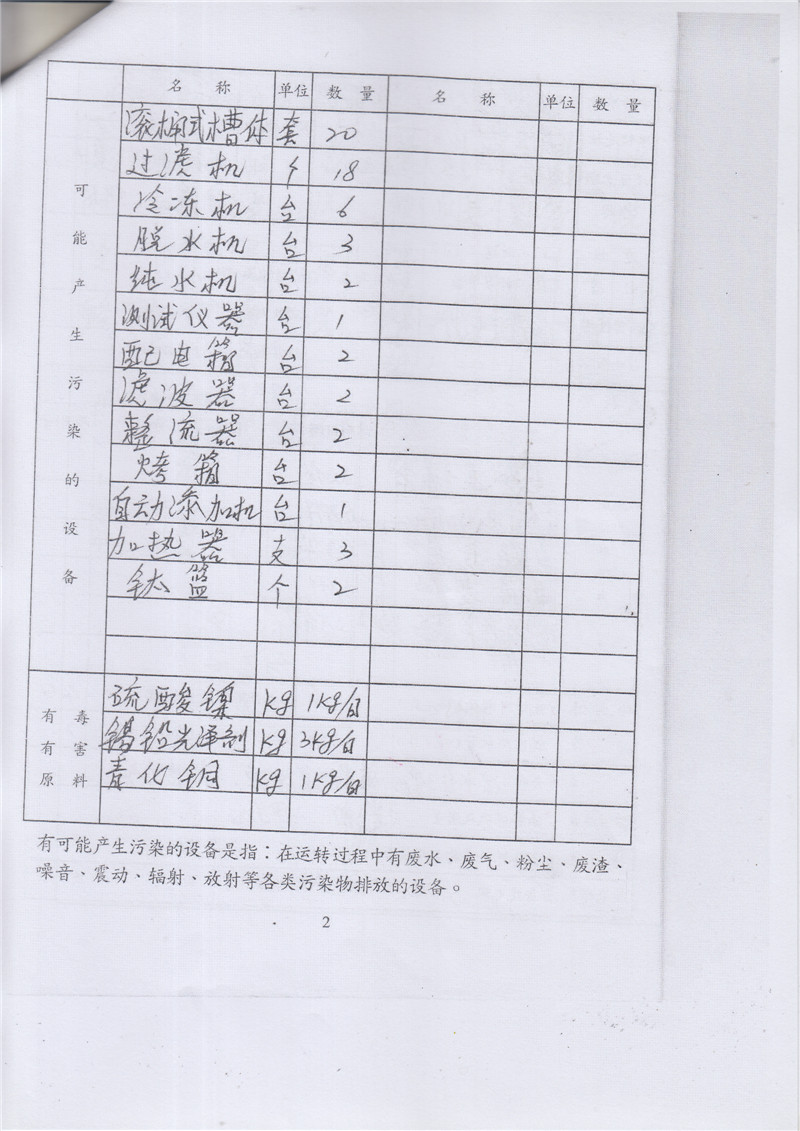 名 称 单位 数 量 名 称 单位 数 量
可能产生污染的设备
滚桶式槽体 套 20
过滤机 个 18
冷冻机 台 6
脱水机 台 3
纯水机 台 2
测试仪器 台 1
配电箱 台 2
滤波器 台 2
整流器 台 2
烤箱 台 2
自动添加机 台 1
加热器 支 3
钛篮 个 2
有毒
有害
原料
硫酸镍 kg 1kg/日
锡铅光泽剂 kg 3kg/日
青化铜 kg 1kg/日
有可能产生污染的设备是指：在运转过程中有废水、废气、粉尘、废渣、
噪音、震动、辐射、放射等各类污染物排放的设备。
2